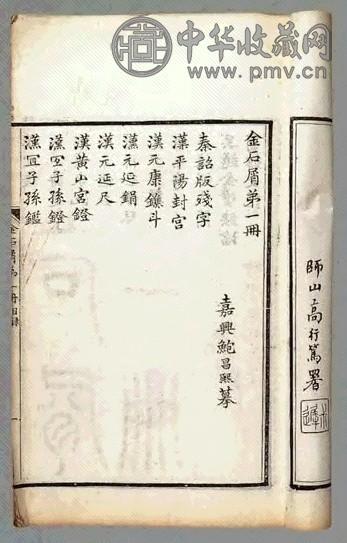 中华收藏网
www.pmv.cn
師山高行篤署
金石屑弟一冊
嘉興鮑昌熙摹
秦詔版殘字
漢平陽封宮
漢元康鐎斗
漢元延鋗
漢元延尺
漢黃山宮鐙
漢宜子孫鐙
漢宜子孫鑑